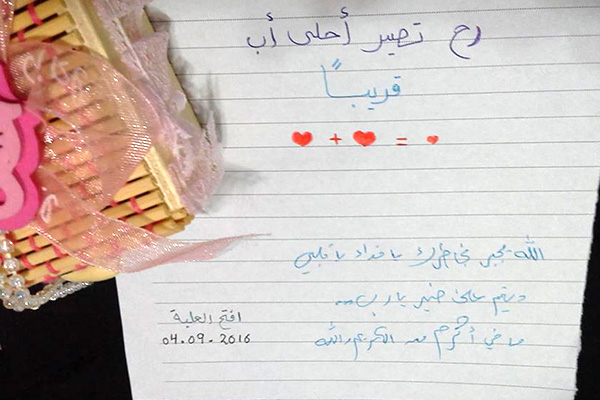 رح تصير أحلى أب
قريباً
❤ + ❤ = ❤
الله يجبر بخاطرك يا فداء يا قلبي
ويتم على خير يا رب...
ما في أكرم من الكريم والله
افتح العلبة
04.09.2016